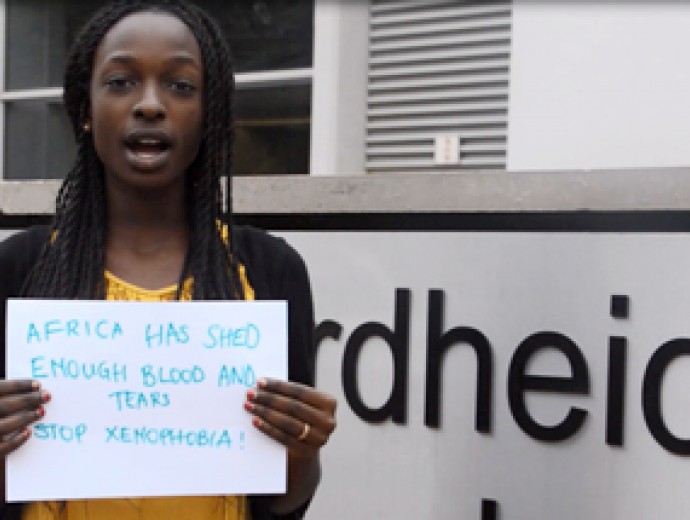 AFRICA HAS SHED
ENOUGH BLOOD AND
TEARS
STOP XENOPHOBIA!
rdheid